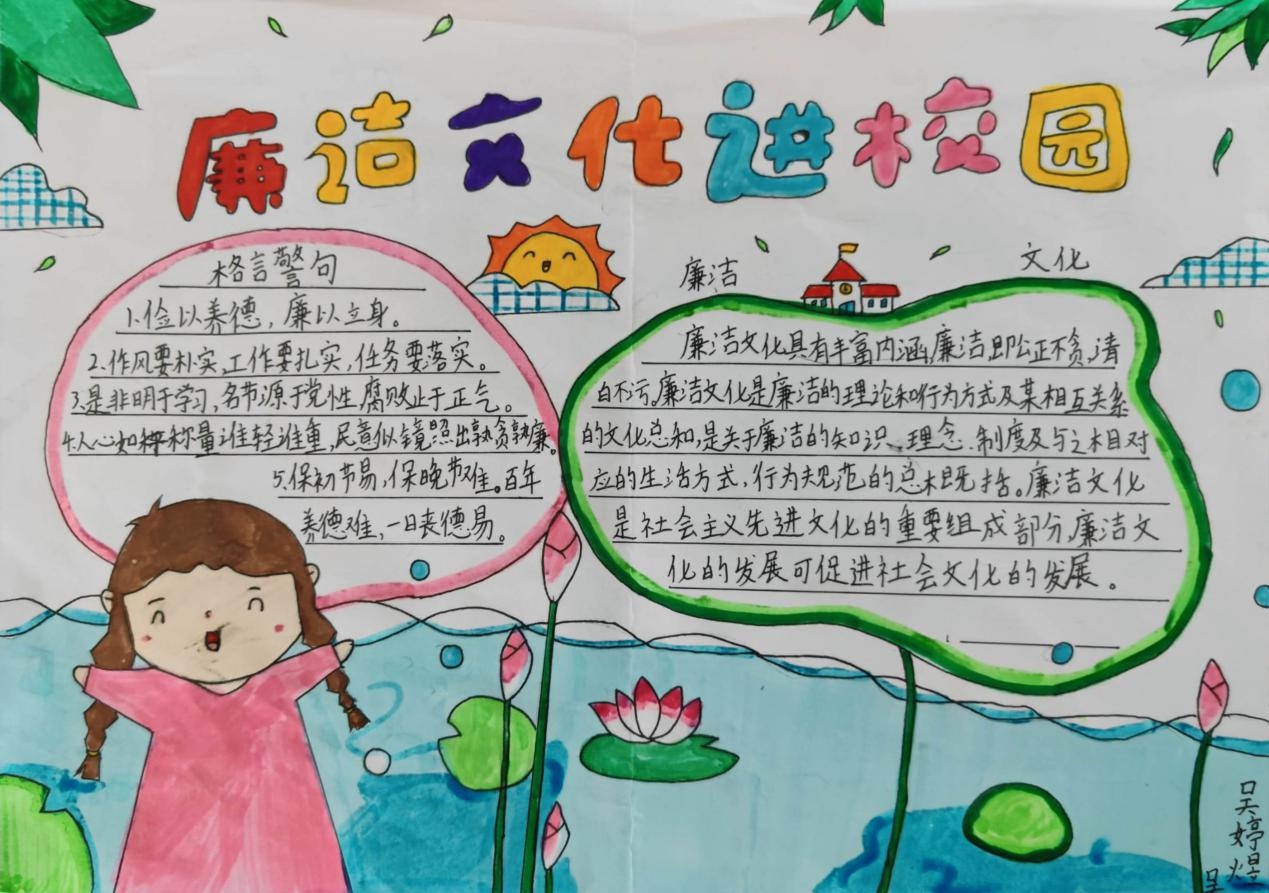 廉洁文化进校园
格言警句
1.俭以养德，廉以立身。
2.作风要朴实，工作要扎实，任务要落实。
3.是非明于学习，名节源于党性，腐败止于正气。
4.人心如秤称量谁轻谁重，民意似镜照出孰贪孰廉。
5.保初节易，保晚节难。百年
养德难，一日丧德易。
廉洁 文化
廉洁文化具有丰富内涵，廉洁即公正不贪，清
白不污，廉洁文化是廉洁的理论和行为方式及某相互关系
的文化总和，是关于廉洁的知识、理念、制度及与之相对
应的生活方式，行为规范的总概括。廉洁文化
是社会主义先进文化的重要组成部分，廉洁文
化的发展可促进社会文化的发展。
吴婷